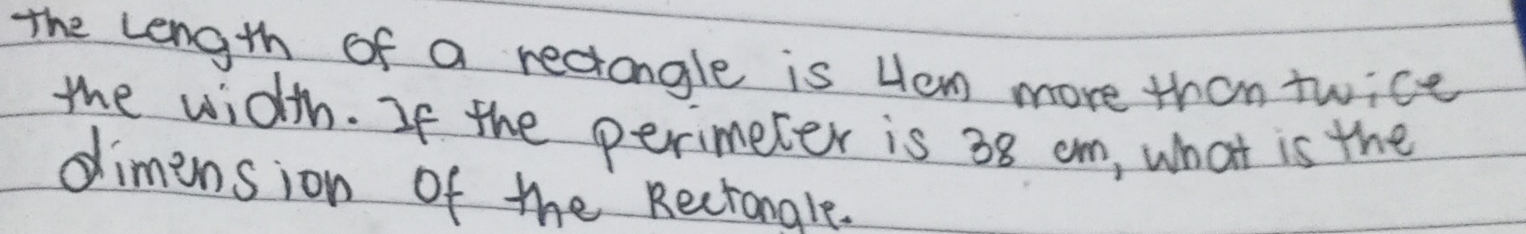 The Length of a rectangle is 4cm more than twice
the width. If the perimeter is 38 cm, what is the
dimension of the Rectangle.